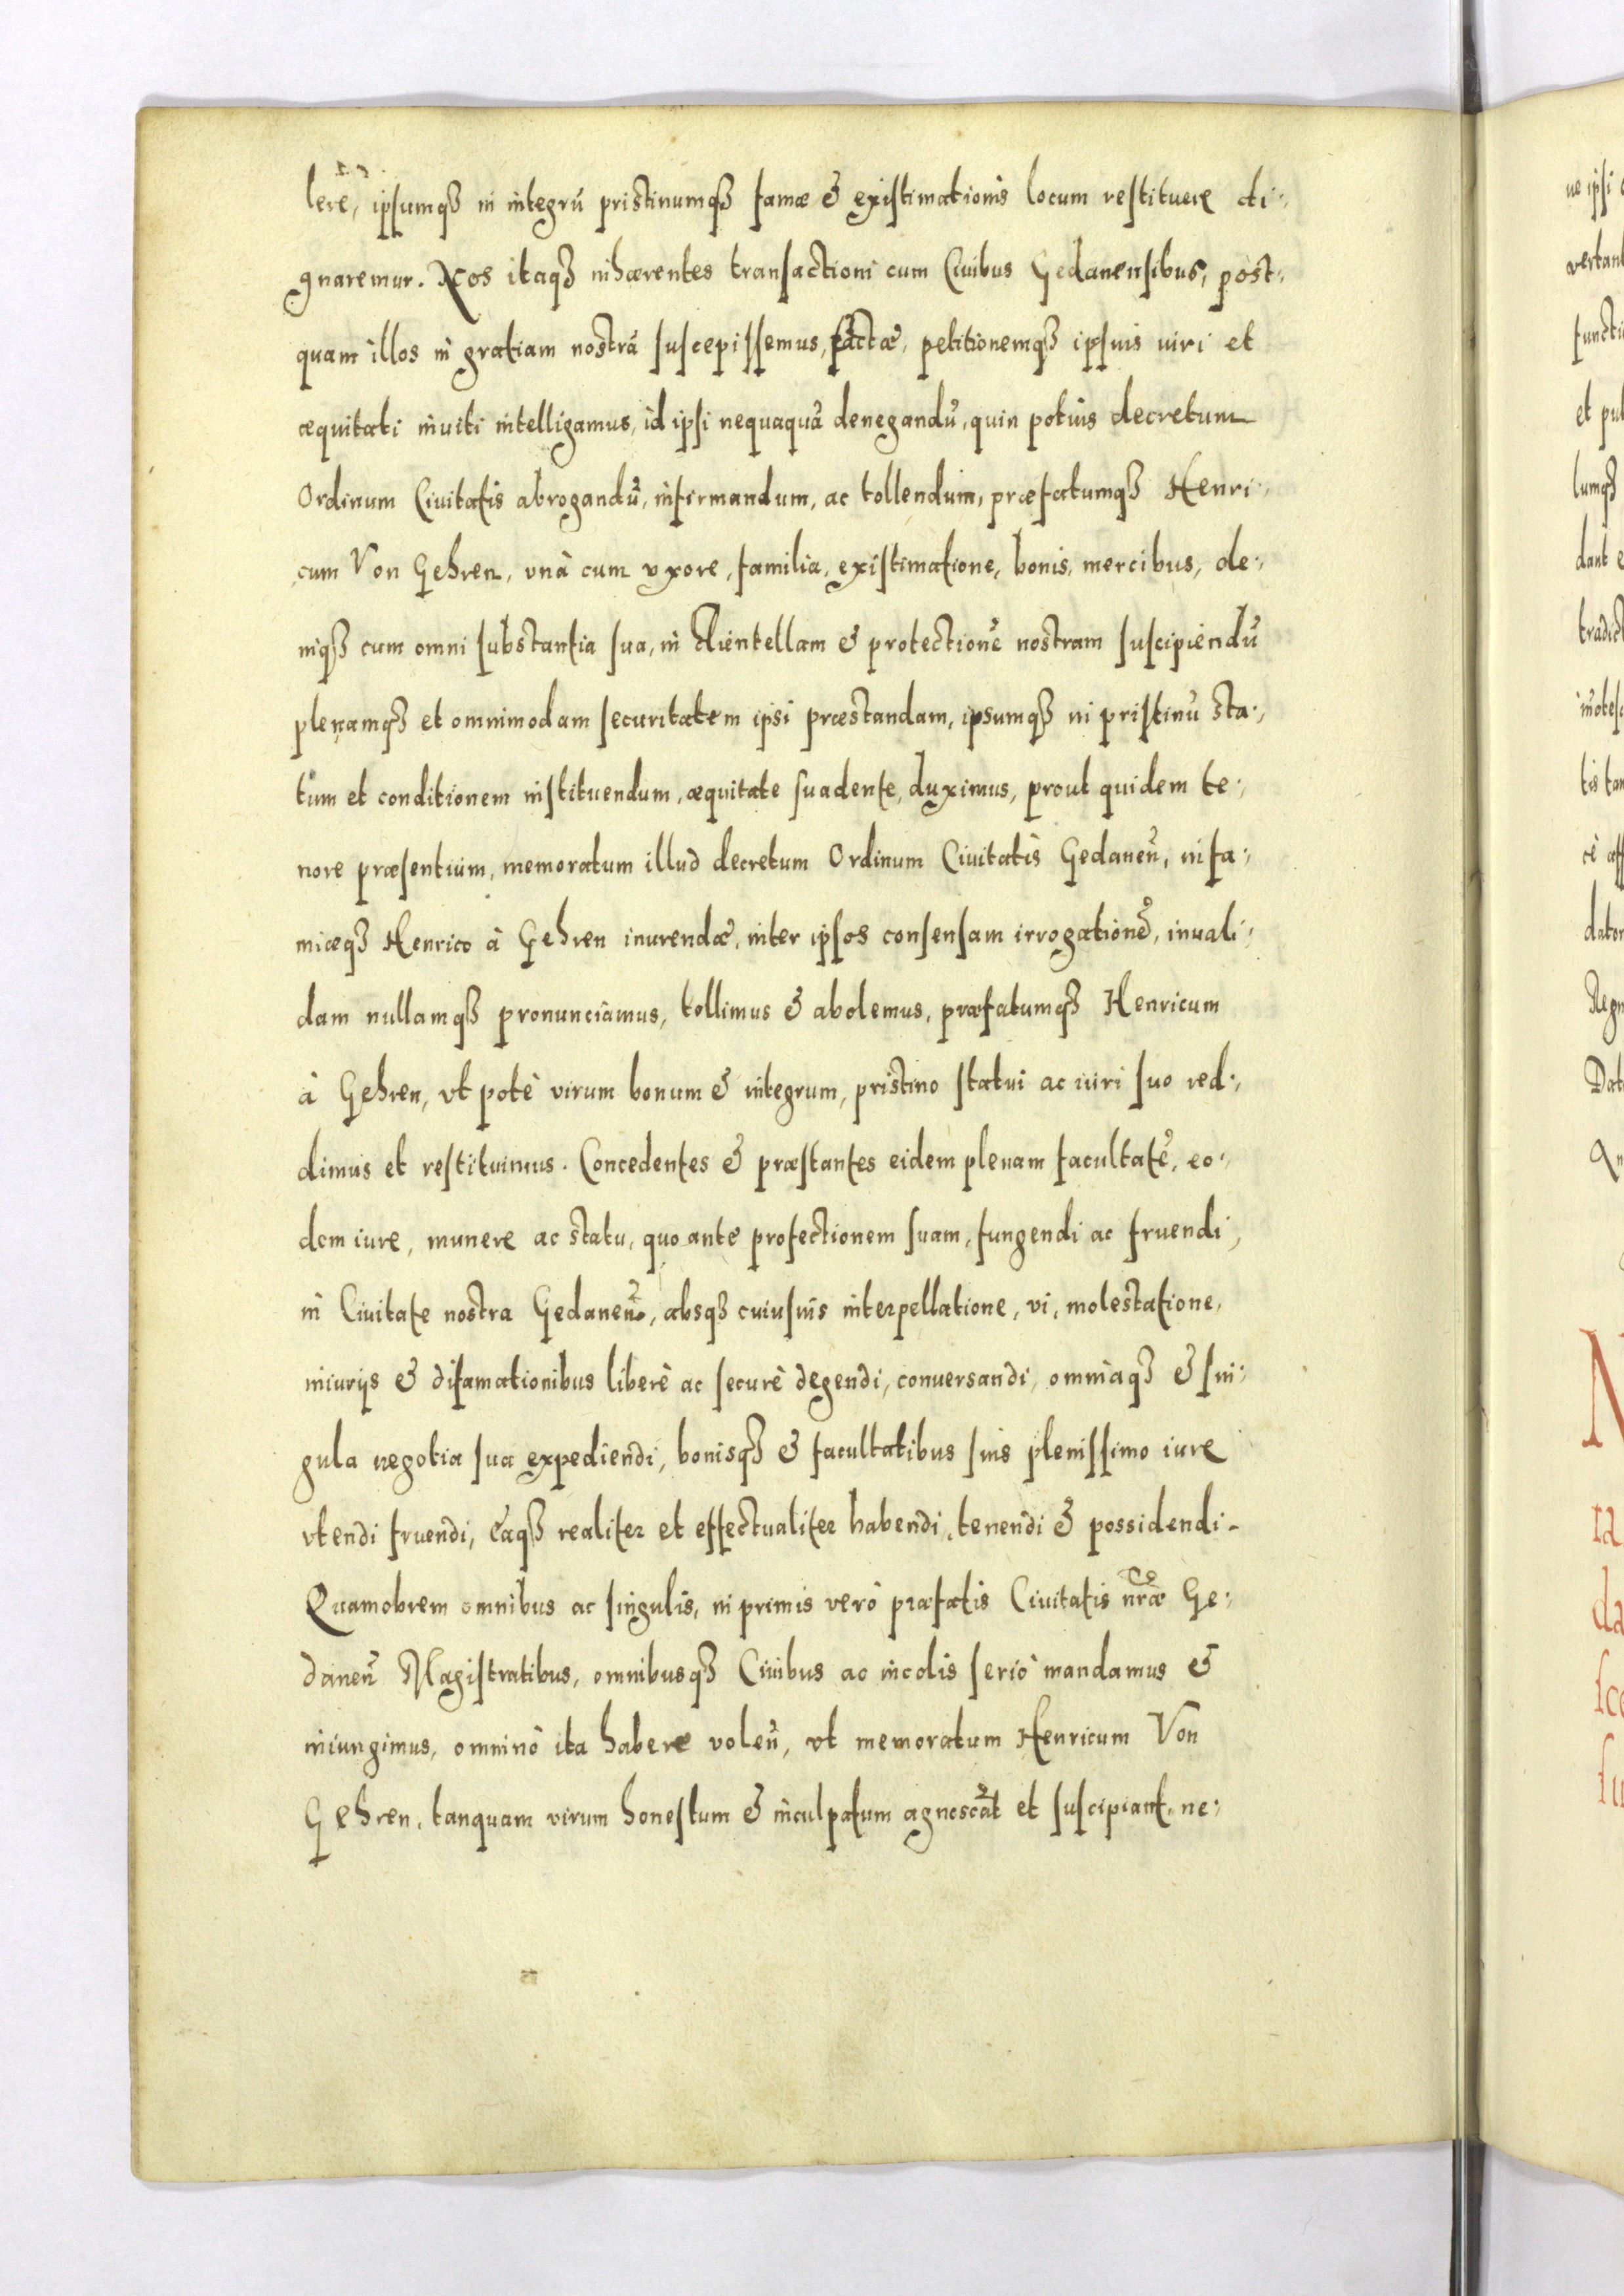 lere, ipsumqꝫ in integrū pristinumqꝫ famæ & existimationis locum restituere di:,
gnaremur. Nos itaqꝫ inhærentes transactioni cum Ciuibus Gedanensibus, post:,
quam illos in gratiam nostrā suscepissemus, factæ, petitionemqꝫ ipsius iuri et
æquitati inniti intelligamus, id ipsi nequaquā denegandū, quin potius decretum
Ordinum Ciuitatis abrogandū, infirmandum, ac tollendum, præfatumqꝫ Henri:,
cum Von Gehren, vnà cum vxore, familia, existimatione, bonis, mercibus, de:,
niqꝫ cum omni substantia sua, in Clientellam & protectionē nostram suscipiendū
plenamqꝫ et omnimodam securitatem ipsi præstandam, ipsumqꝫ in pristinū sta:,
tum et conditionem instituendum, æquitate suadente, duximus, prout quidem te:,
nore præsentium, memoratum illud decretum Ordinum Ciuitatis Gedaneñ, infa:,
miæqꝫ Henrico à Gehren inurendæ, inter ipsos consensam irrogationē, inuali:,
dam nullamqꝫ pronunciamus, tollimus & abolemus, præfatumqꝫ Henricum
à Gehren, vt potè virum bonum & integrum, pristino statui ac iuri suo red:,
dimus et restituimus. Concedentes & præstantes eidem plenam facultatē, eo:,
dem iure, munere ac statu, quo ante profectionem suam, fungendi ac fruendi,
in Ciuitate nostra Gedaneñ, absqꝫ cuiusuis interpellatione, vi, molestatione,
iniurijs & difamationibus liberè ac securè degendi, conuersandi, omniaqꝫ & sin:,
gula negotia sua expediendi, bonisqꝫ & facultatibus suis plenissimo iure
vtendi fruendi, eaqꝫ realiter et effectualiter habendi, tenendi & possidendi.
Quamobrem omnibus ac singulis, in primis verò præfatis Ciuitatis nræ Ge:,
daneñ Magistratibus, omnibusqꝫ Ciuibus ac incolis seriò mandamus &
iniungimus, omninò ita habere voleñ, vt memoratum Henricum Von
Gehren, tanquam virum honestum & inculpatum agnoscāt et suscipiant, ne:,